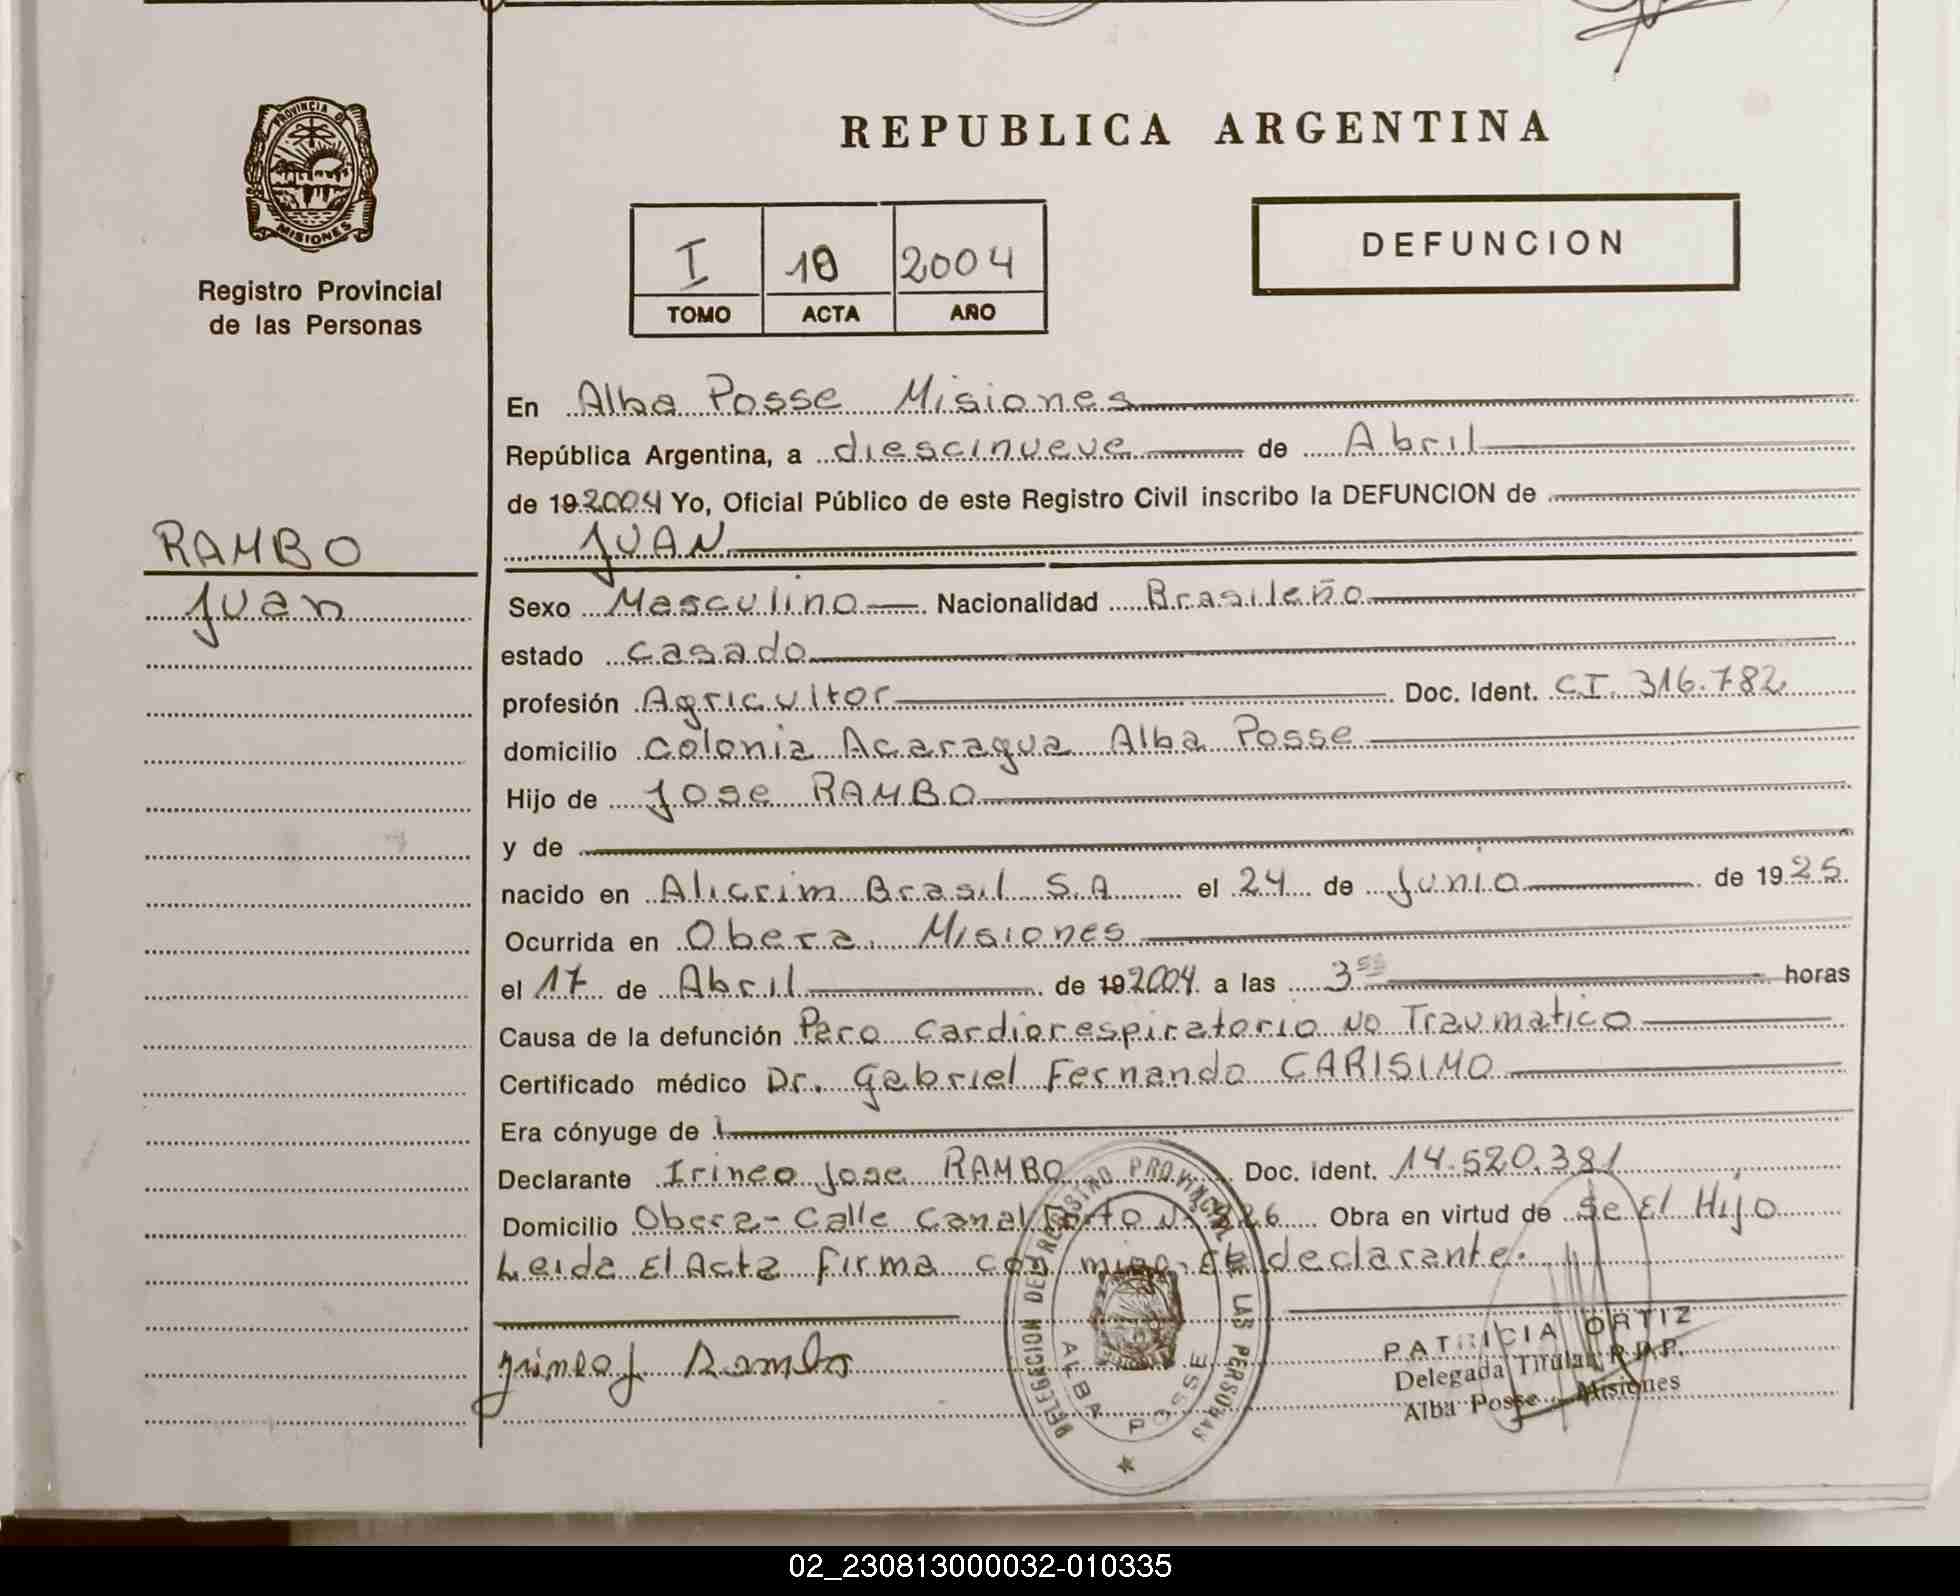 PROVINCIA DE
MISIONES
Registro Provincial
de las Personas
REPUBLICA ARGENTINA
I 10 2004
TOMO ACTA AÑO
DEFUNCION
En Alba Posse Misiones
República Argentina, a diescinueve de Abril
de 19 2004 Yo, Oficial Público de este Registro Civil inscribo la DEFUNCION de
JUAN
RAMBO
Juan
Sexo Masculino Nacionalidad Brasileño
estado casado
profesión Agricultor Doc. Ident. CI. 316.782
domicilio Colonia Acaragua Alba Posse
Hijo de Jose RAMBO
y de
nacido en Alicrim Brasil S.A el 24 de Junio de 1925
Ocurrida en Obera, Misiones
el 17 de Abril de 19 2004 a las 3 horas
Causa de la defunción Paro Cardiorespiratorio no Traumatico
Certificado médico Dr. Gabriel Fernando CARISIMO
Era cónyuge de
Declarante Irineo Jose RAMBO Doc. Ident. 14.520.381
Domicilio Obera - Calle Canal 26 Obra en virtud de Se El Hijo
Leida El Acta Firma con migo El declarante.
Irineo J Rambo
DELEGACION DEL REGISTRO PROVINCIAL DE LAS PERSONAS
ALBA POSSE
PATRICIA ORTIZ
Delegada Titular R.P.P.
Alba Posse - Misiones
02_230813000032-010335